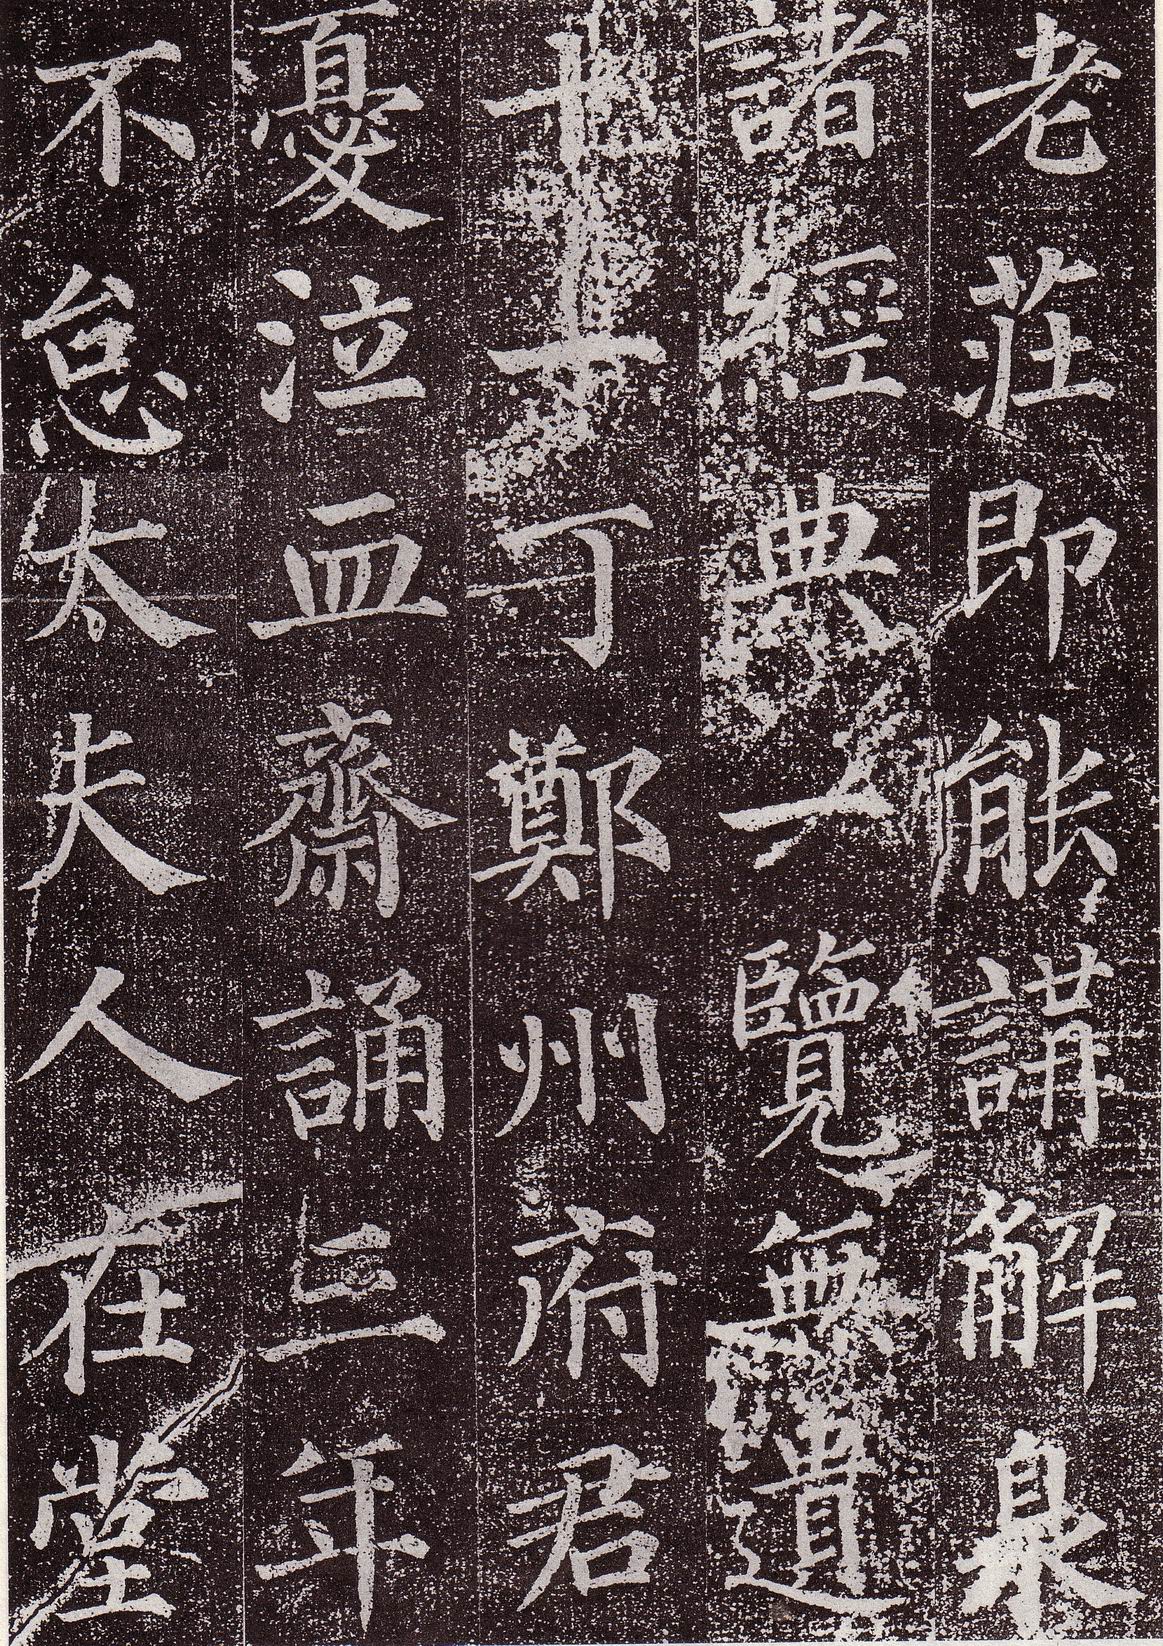 老莊即能講解泉
諸經典一覽無遺
十七丁鄭州府君
憂泣血齋誦三年
不怠太夫人在堂